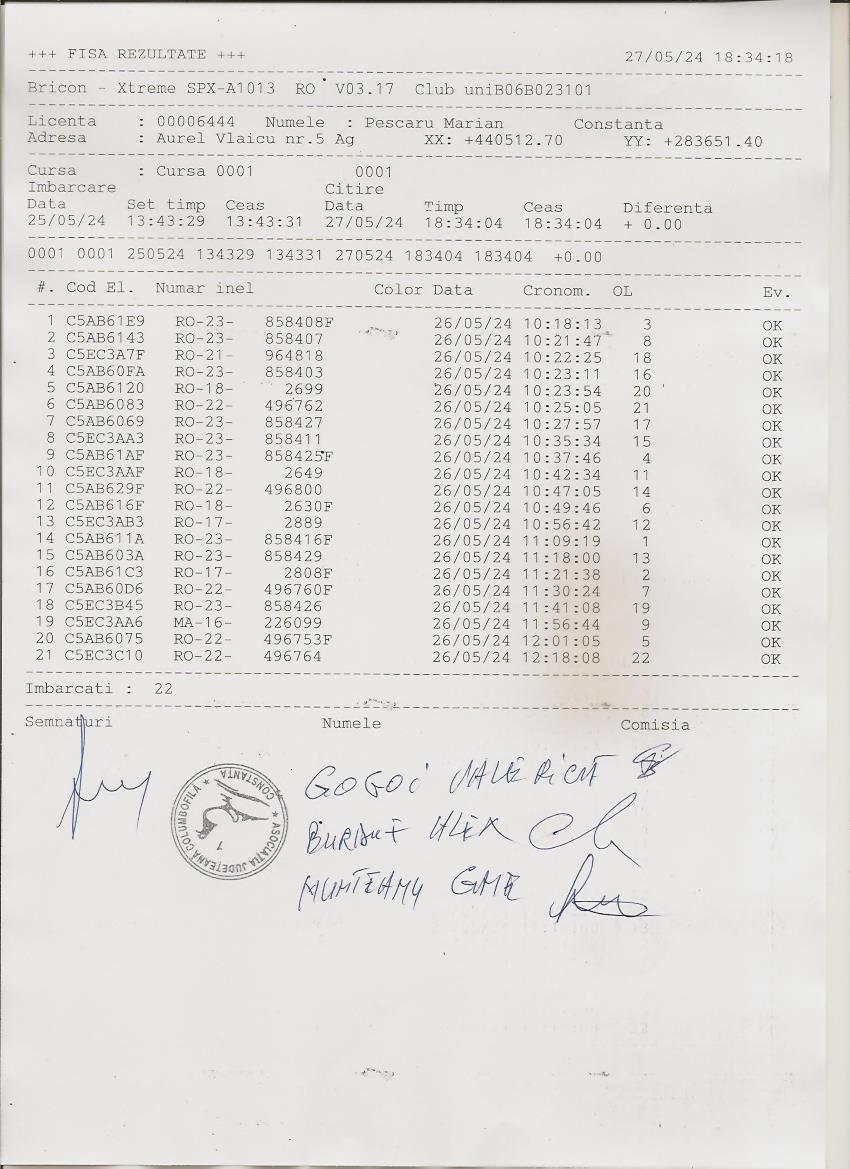 +++ FISA REZULTATE +++ 27/05/24 18:34:18
Bricon - Xtreme SPX-A1013 RO V03.17 Club uniB06B023101
Licenta : 00006444 Numele : Pescaru Marian Constanta
Adresa : Aurel Vlaicu nr.5 Ag XX: +440512.70 YY: +283651.40
Cursa : Cursa 0001 0001
Imbarcare Citire
Data Set timp Ceas Data Timp Ceas Diferenta
25/05/24 13:43:29 13:43:31 27/05/24 18:34:04 18:34:04 + 0.00
0001 0001 250524 134329 134331 270524 183404 183404 +0.00
#. Cod El. Numar inel Color Data Cronom. OL Ev.
1 C5AB61E9 RO-23- 858408F 26/05/24 10:18:13 3 OK
2 C5AB6143 RO-23- 858407 26/05/24 10:21:47 8 OK
3 C5EC3A7F RO-21- 964818 26/05/24 10:22:25 18 OK
4 C5AB60FA RO-23- 858403 26/05/24 10:23:11 16 OK
5 C5AB6120 RO-18- 2699 26/05/24 10:23:54 20 OK
6 C5AB6083 RO-22- 496762 26/05/24 10:25:05 21 OK
7 C5AB6069 RO-23- 858427 26/05/24 10:27:57 17 OK
8 C5EC3AA3 RO-23- 858411 26/05/24 10:35:34 15 OK
9 C5AB61AF RO-23- 858425F 26/05/24 10:37:46 4 OK
10 C5EC3AAF RO-18- 2649 26/05/24 10:42:34 11 OK
11 C5AB629F RO-22- 496800 26/05/24 10:47:05 14 OK
12 C5AB616F RO-18- 2630F 26/05/24 10:49:46 6 OK
13 C5EC3AB3 RO-17- 2889 26/05/24 10:56:42 12 OK
14 C5AB611A RO-23- 858416F 26/05/24 11:09:19 1 OK
15 C5AB603A RO-23- 858429 26/05/24 11:18:00 13 OK
16 C5AB61C3 RO-17- 2808F 26/05/24 11:21:38 2 OK
17 C5AB60D6 RO-22- 496760F 26/05/24 11:30:24 7 OK
18 C5EC3B45 RO-23- 858426 26/05/24 11:41:08 19 OK
19 C5EC3AA6 MA-16- 226099 26/05/24 11:56:44 9 OK
20 C5AB6075 RO-22- 496753F 26/05/24 12:01:05 5 OK
21 C5EC3C10 RO-22- 496764 26/05/24 12:18:08 22 OK
Imbarcati : 22
Semnaturi Numele Comisia
ASOCIAȚIA JUDEȚEANA COLUMBOFILA ★ CONSTANȚA ★
1
GOGOI VALERICA
ALEX
MUNTEANU